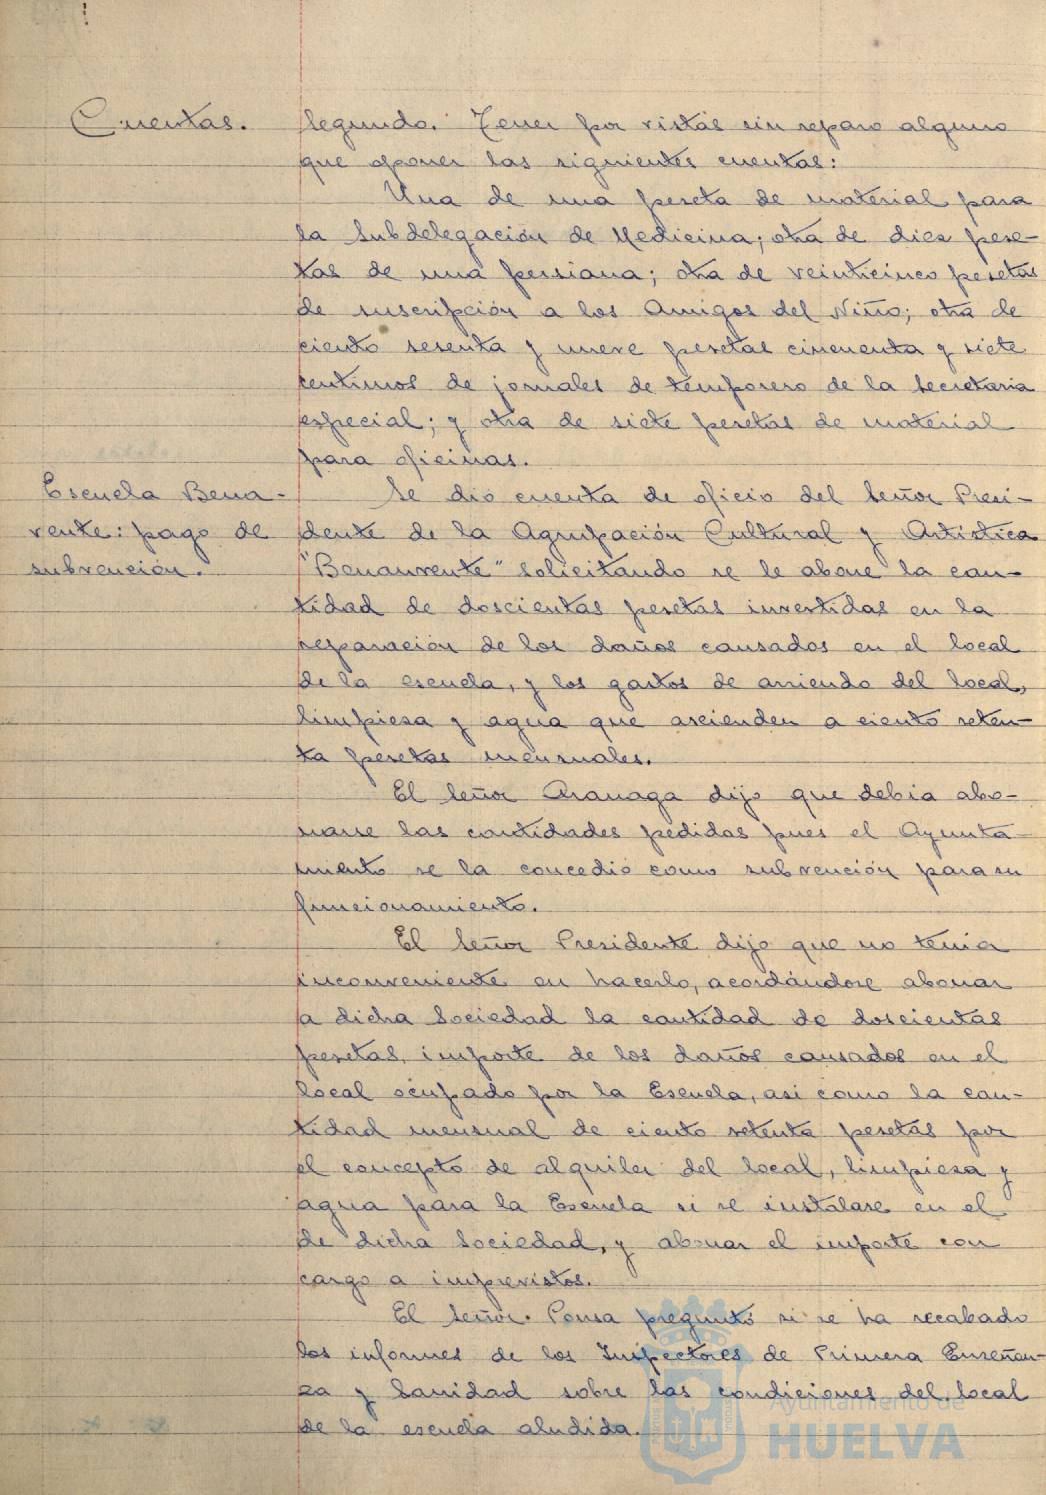 Cuentas.
Segundo. Tener por vistas sin reparo alguno
que oponer las siguientes cuentas:
Una de una peseta de material para
la Subdelegación de Medicina; otra de diez pese-
tas de una persiana; otra de veinticinco pesetas
de suscripción a los Amigos del Niño; otra de
ciento sesenta y nueve pesetas cincuenta y siete
centimos de jornales de temporero de la Secretaria
especial; y otra de siete pesetas de material
para oficinas.
Escuela Bena-
vente: pago de
subvención.
Se dió cuenta de oficio del Señor Presi-
dente de la Agrupación Cultural y Artística
"Benanvente" solicitando se le abone la can-
tidad de doscientas pesetas invertidas en la
reparación de los daños causados en el local
de la escuela, y los gastos de arriendo del local,
limpiesa y agua que ascienden a ciento seten-
ta pesetas mensuales.
El Señor Aranaga dijo que debia abo-
narse las cantidades pedidas pues el Ayunta-
miento se la concedió como subvención para su
funcionamiento.
El Señor Presidente dijo que no tenia
inconveniente en hacerlo, acordándose abonar
a dicha Sociedad la cantidad de doscientas
pesetas, importe de los daños causados en el
local ocupado por la Escuela, asi como la can-
tidad mensual de ciento setenta pesetas por
el concepto de alquiler del local, limpiesa y
agua para la Escuela si se instalase en el
de dicha Sociedad, y abonar el importe con
cargo a imprevistos.
El Señor Ponsa preguntó si se ha recabado
los informes de los Inspectores de Primera Enseñan-
za y Sanidad sobre las condiciones del local
de la escuela aludida.
Ayuntamiento de
HUELVA